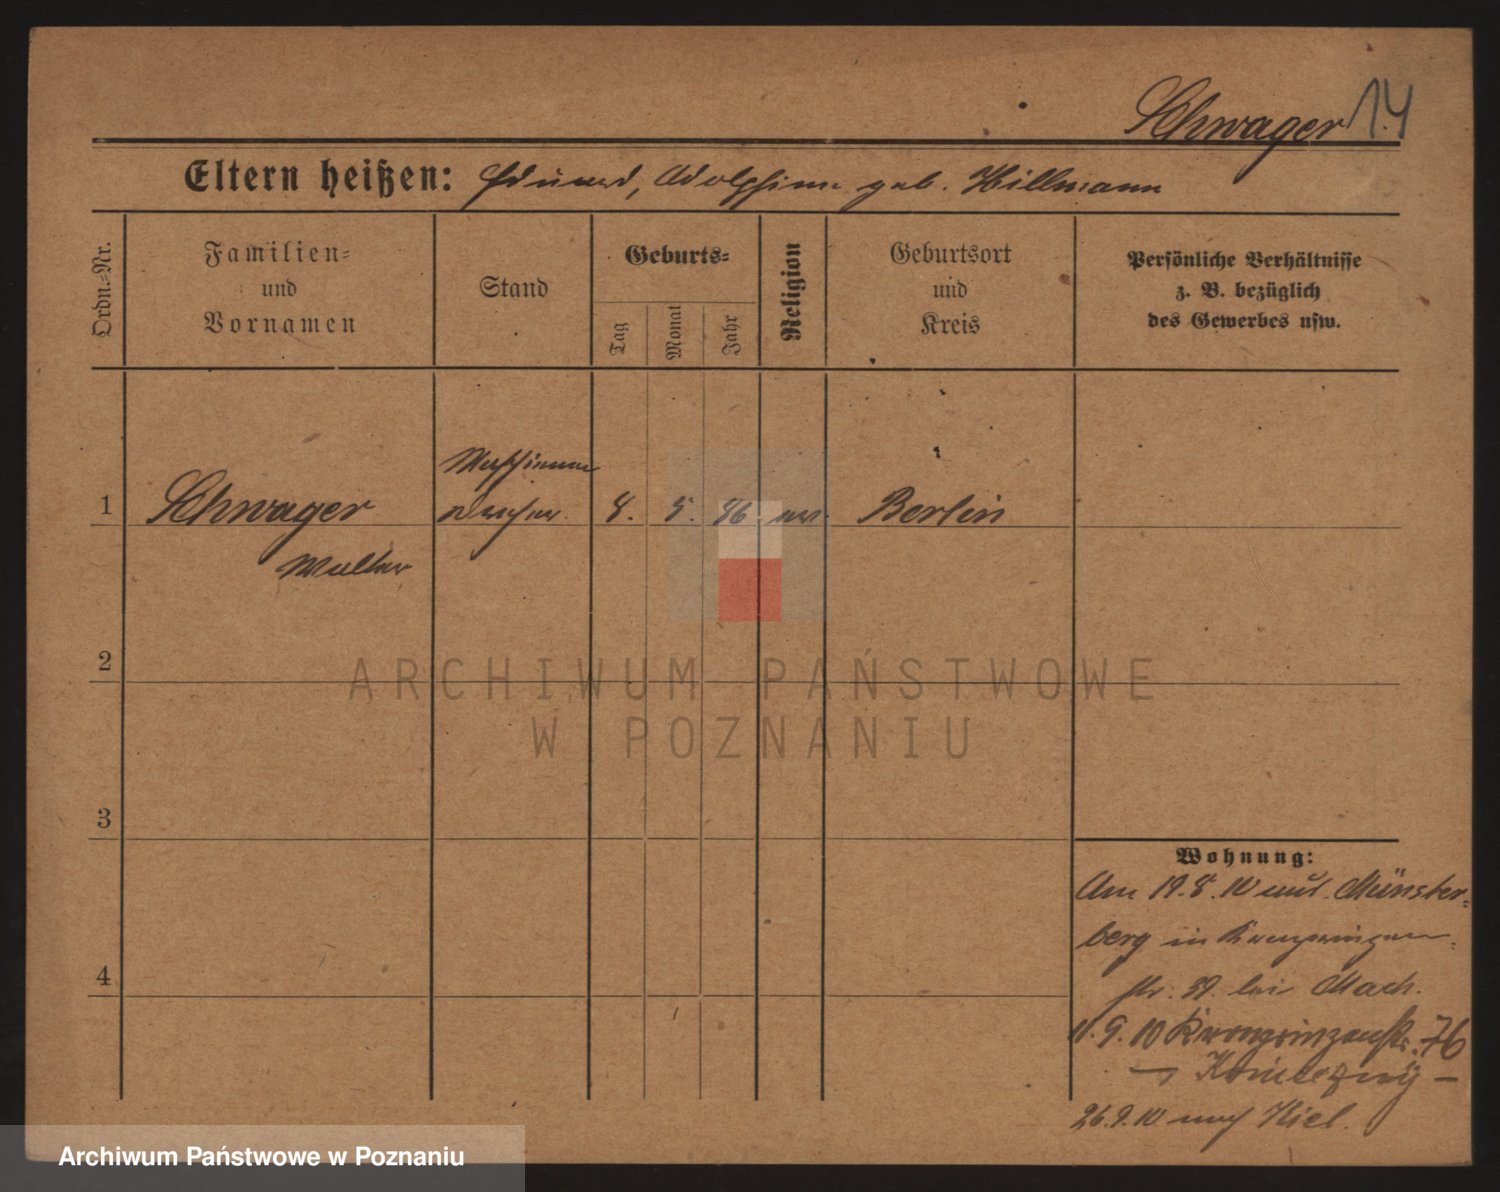 Schwager 14
Eltern heißen: Eduard, Adolphine geb. Hillmann
Ordn.-Nr.
Familien-
und
Vornamen
Stand
Geburts-
Tag
Monat
Jahr
Religion
Geburtsort
und
Kreis
Persönliche Verhältnisse
z. B. bezüglich
des Gewerbes usw.
1
Schwager
Walter
8. 5. 86 ev.
Berlin
2
3
4
Wohnung:
Am 19.8.10 aus Münster-
berg in Kronprinzen-
str. 39. bei Mach.
11.9.10 Kronprinzenstr. 76
26.9.10 nach Kiel.
ARCHIWUM PAŃSTWOWE
W POZNANIU
Archiwum Państwowe w Poznaniu